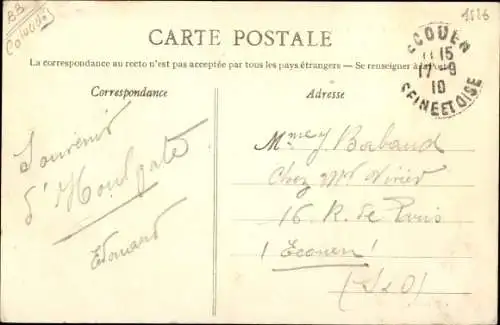 BB
1586
CARTE POSTALE
La correspondance au recto n'est pas acceptée par tous les pays étrangers. — Se renseigner à la Poste
ECOUEN
11 15
17-9
10
SEINE ET OISE
Correspondance
Adresse
Souvenir
d'Houlgate
Edouard
Mme J Babaud
Chez Mr
16 R. de Paris
Ecouen
(S&O)